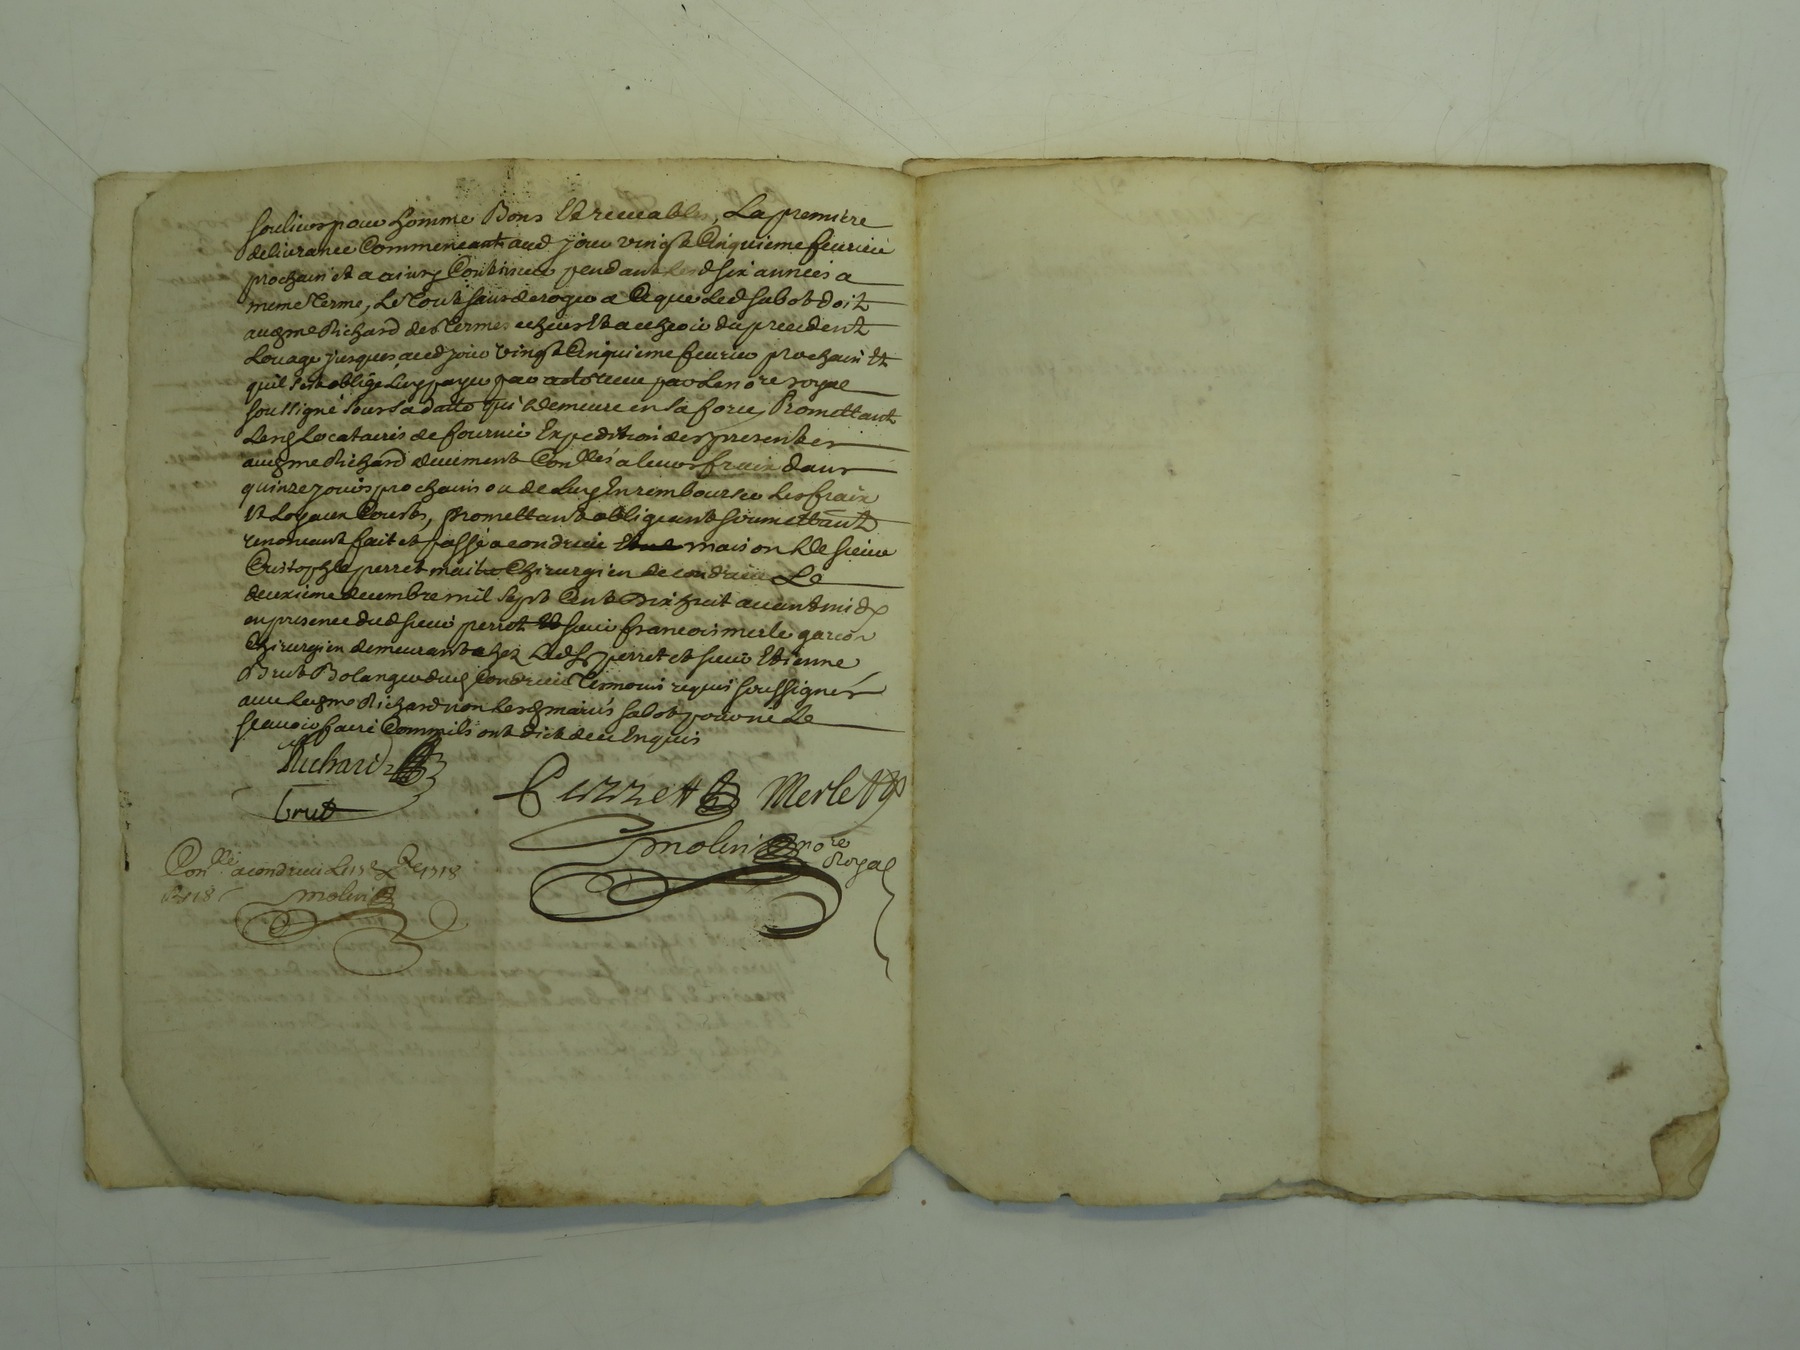 souliers pour homme Bons Et receuables, La premiere
deliurance Commencant aud jour vingt Cinquieme feurier
prochain et a ainsy Continuer pendant lesd six années a
meme Terme, Le Tout sans deroger a Ce que Led Sabot doit
aud me Richard des Termes echeus Et a echeoir du precedent
Louage jusques aud jour vingt Cinquieme feurier prochain Et
quil s'est obligé Luy payer par acte receu par Le nore royal
soussigné sous sa datte qui demeure en sa force, Promettant
Lesd Locataires de fournir Expedition des presentes
aud me Richard duement Conllés a leurs fraix dans
quinze jours prochains ou de Luy En rembourser Les fraix
Et Loyaux Couts, promettant obligeant soumettant
renonceant fait et passé a condrieu maison de sieur
Cristophle perret maitre Chirurgien de condrieu Le
deuxieme decembre mil sept Cent dix huit auant midy
en presence dud sieur perret Et sieur francois merle garcon
Chirurgien demeurant chez Led Sr perret et sieur Etienne
Brut Bolanger dud Condrieu Temoins requis soussignés
auec Led me Richard non Lesd mariés Sabot pour ne Le
scauoir faire Comm'ils ont dict de ce Enquis
Richard
Perret Merlett
Brut
molin nore
Royal
Conllé a condrieu Le 1718
molin